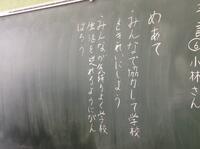 めあて
・みんなで協力して学校
をきれいにしよう
・みんなが気持ちよく学校
生活を送れるようにがん
ばろう
小林さん